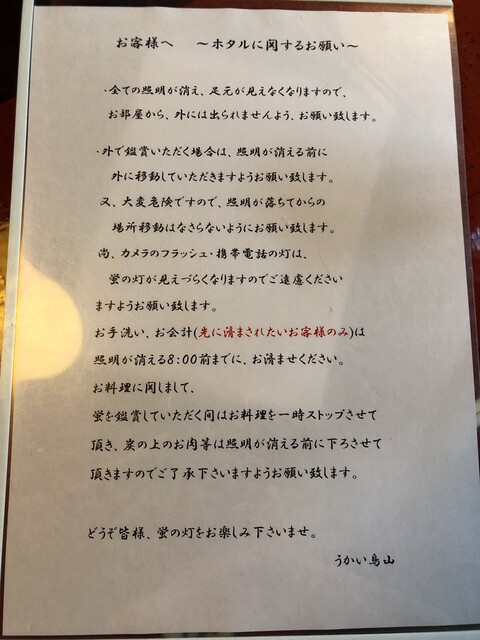 お客様へ　～ホタルに関するお願い～
・全ての照明が消え、足元が見えなくなりますので、
お部屋から、外には出られませんよう、お願い致します。
・外で鑑賞いただく場合は、照明が消える前に
外に移動していただきますようお願い致します。
又、大変危険ですので、照明が落ちてからの
場所移動はなさらないようにお願い致します。
尚、カメラのフラッシュ・携帯電話の灯は、
蛍の灯が見えづらくなりますのでご遠慮ください
ますようお願い致します。
お手洗い、お会計(先に済まされたいお客様のみ)は
照明が消える8:00前までに、お済ませください。
お料理に関しまして、
蛍を鑑賞していただく間はお料理を一時ストップさせて
頂き、炭の上のお肉等は照明が消える前に下ろさせて
頂きますのでご了承下さいますようお願い致します。
どうぞ皆様、蛍の灯をお楽しみ下さいませ。
うかい鳥山